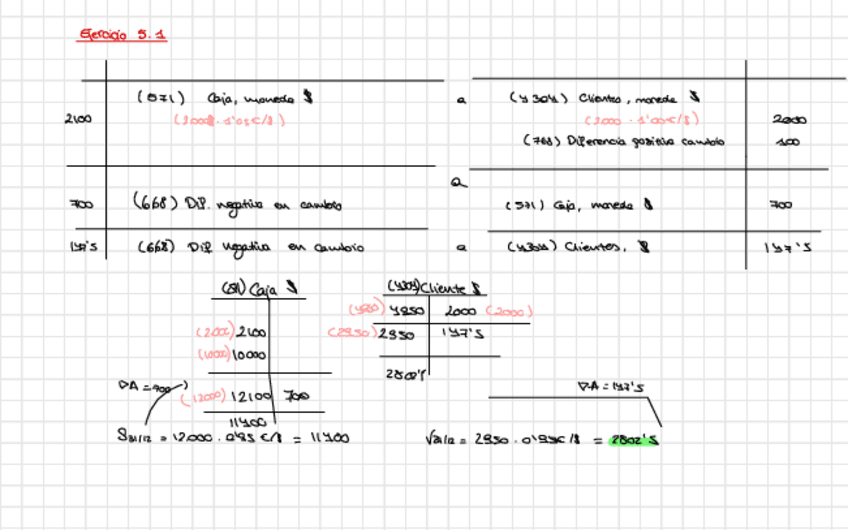 Ejercicio 5.1
(571) Caja, moneda $ a (4304) Clientes, moneda $
2100 (2000$ · 1'05€/$) (2000 · 1'00€/$) 2000
(768) Diferencia positiva cambio 100
a
700 (668) Dif. negativa en cambio (571) Caja, moneda $ 700
147'5 (668) Dif negativa en cambio a (4304) Clientes, $ 147'5
(571) Caja $ (4304) Cliente $
(4950) 4950 2000 (2000)
(2000) 2100 (2950) 2950 147'5
(10000) 10000
2802'5
∇A = 700 (12000) 12100 700 ∇A = 147'5
11400
S 31/12 = 12.000 · 0'95 €/$ = 11400 V 31/12 = 2950 · 0'95€/$ = 2802'5